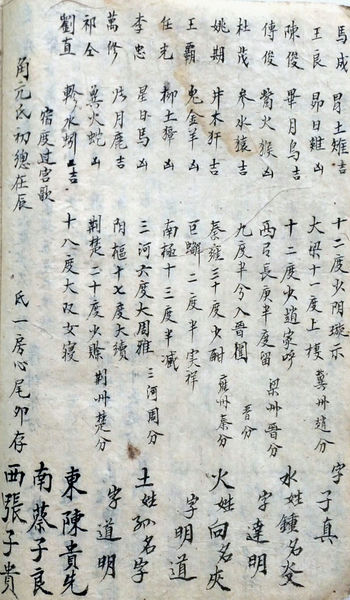 馬成 胃土雉吉 十二度少陰璇示 冀州趙分 字子真
王良 昴日雞凶 大梁十一度上樓
陳俊 畢月烏吉 十二度少趙家呼 水姓鍾名
傅俊 觜火猴凶 西弓長庚半度留 梁州晋分
杜茂 参水猿吉 九度半兮入晋國 晋分 字達明
姚期 井木犴吉 秦雍三十度少酎 雍州秦分 火姓向名
王霸 鬼金羊凶 巨蠏二度半实祥 字明道
任光 柳土獐凶 南極十三度半减
李忠 星日馬凶 三河六度大周雅 三河周分 土姓孙名字
萬修 张月鹿吉 陰樞十七度大續 字道明
祁全 翼火蛇凶 荆楚二十度少賒 荆州楚分
劉直 軫水蚓吉 十八度大双女寢 東陳貴先
宿度过宫歌 南蔡子良
角亢氐初總在辰 氐一房心尾卯存 西張子貴